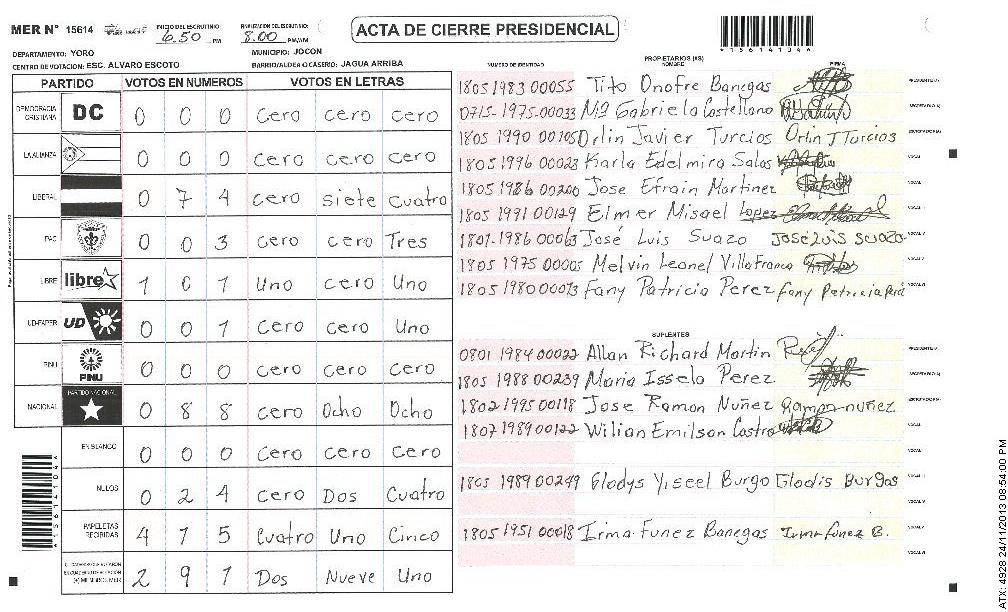 MER Nº 15614 INICIO DEL ESCRUTINIO: 6.50 PM FINALIZACION DEL ESCRUTINIO: 8.00 PM/AM
ACTA DE CIERRE PRESIDENCIAL
*15614134*
DEPARTAMENTO: YORO MUNICIPIO: JOCON
CENTRO DE VOTACION: ESC. ALVARO ESCOTO BARRIO/ALDEA O CASERIO: JAGUA ARRIBA
PARTIDO VOTOS EN NUMEROS VOTOS EN LETRAS
DEMOCRACIA CRISTIANA DC 0 0 0 cero cero cero
LA ALIANZA 0 0 0 cero cero cero
LIBERAL 0 7 4 cero siete cuatro
PAC 0 0 3 cero cero Tres
LIBRE libre 1 0 1 Uno cero Uno
UD-FAPER UD 0 0 1 cero cero Uno
PINU PINU 0 0 0 cero cero cero
NACIONAL PARTIDO NACIONAL 0 8 8 cero Ocho Ocho
EN BLANCO 0 0 0 cero cero cero
NULOS 0 2 4 cero Dos Cuatro
PAPELETAS RECIBIDAS 4 1 5 Cuatro Uno Cinco
(+) MIEMBROS MER 2 9 1 Dos Nueve Uno
PROPIETARIOS (AS)
NUMERO DE IDENTIDAD NOMBRE FIRMA
1805 1983 00055 Tito Onofre Banegas PRESIDENTE (A)
0715-1975-00033 Mª Gabriela Castellano SECRETARIO (A)
1805 1990 00105 Orlin Javier Turcios Orlin J Turcios ESCRUTADOR (A)
1805 1996 00023 Karla Edelmira Salas VOCAL I
1805 1986 00200 Jose Efrain Martinez VOCAL
1805 1991 00129 Elmer Misael Lopez VOCAL
1801-1986 00063 José Luis Suazo José Luis Suazo VOCAL
1805 1975 00005 Melvin Leonel Villafranca VOCAL V
1805 1980 00073 Fany Patricia Perez Fany Patricia Perez VOCAL VI
SUPLENTES
0801 1984 00022 Allan Richard Martin PRESIDENTE (A)
1805 1988 00239 Maria Issela Perez SECRETARIO (A)
1802 1995 00118 Jose Ramon Nuñez Ramon nuñez ESCRUTADOR (A)
1807 1989 00122 Wilian Emilson Castro VOCAL I
VOCAL
1805 1989 00249 Glodys Yiseel Burgo Glodis Burgos VOCAL
VOCAL
1805 1951 00018 Irma Funez Banegas Irma funez B. VOCAL V
VOCAL VI
ATX: 4928 24/11/2013 08:54:00 PM